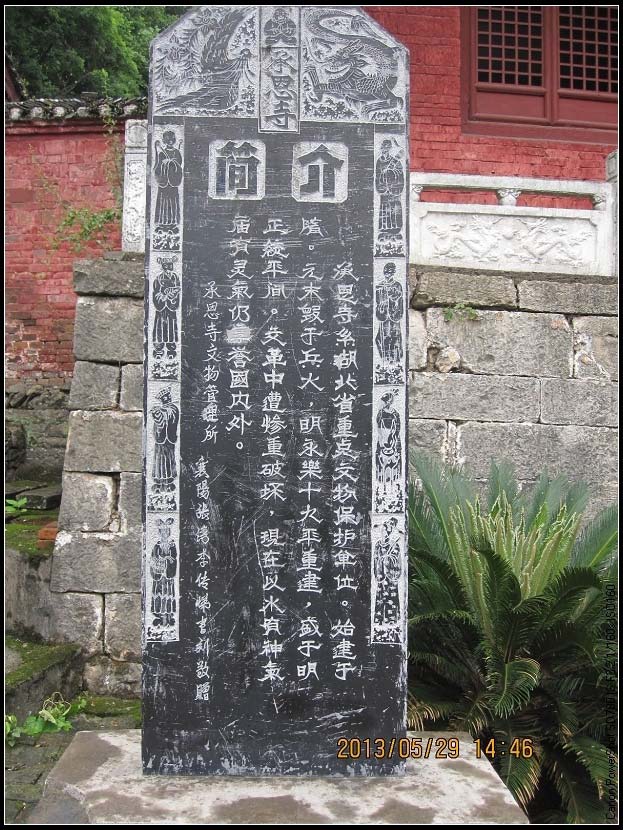 承恩寺
简介
承恩寺系湖北省重点文物保护单位。始建于
隋。元末毁于兵火，明永樂十九年重建，盛于明
正统年间。文革中遭惨重破坏，現在以水有神氣
庙有灵氣仍享誉國内外。
承恩寺文物管理所
襄陽張湾李传書刻敬贈
2013/05/29 14:46
Canon PowerShot